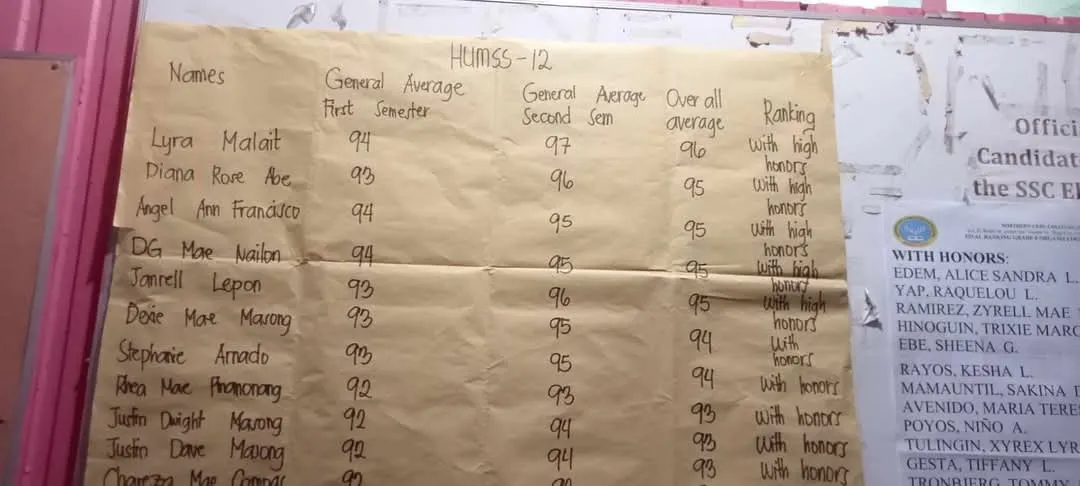 HUMSS-12
Names General Average First Semester General Average Second Sem Over all average Ranking
Lyra Malait 94 97 96 With high honors
Diana Rose Abe 93 96 95 With high honors
Angel Ann Francisco 94 95 95 With high honors
DG Mae Nailon 94 95 95 With high honors
Janrell Lepon 93 96 95 With high honors
Dexie Mae Masong 93 95 94 With honors
Stephanie Arnado 93 95 94 With honors
Rhea Mae 92 93 93 With honors
Justin Dwight Masong 92 94 93 With honors
Justin Dave Masong 92 94 93 With honors
Mae 92
Offici
Candidat
the SSC El
WITH HONORS:
EDEM, ALICE SANDRA L.
YAP, RAQUELOU L.
RAMIREZ, ZYRELL MAE
HINOGUIN, TRIXIE MARC
EBE, SHEENA G.
RAYOS, KESHA L.
MAMAUNTIL, SAKINA
AVENIDO, MARIA TERE
POYOS, NIÑO A.
TULINGIN, XYREX LYR
GESTA, TIFFANY L.
TRONBJERG, TOMMY